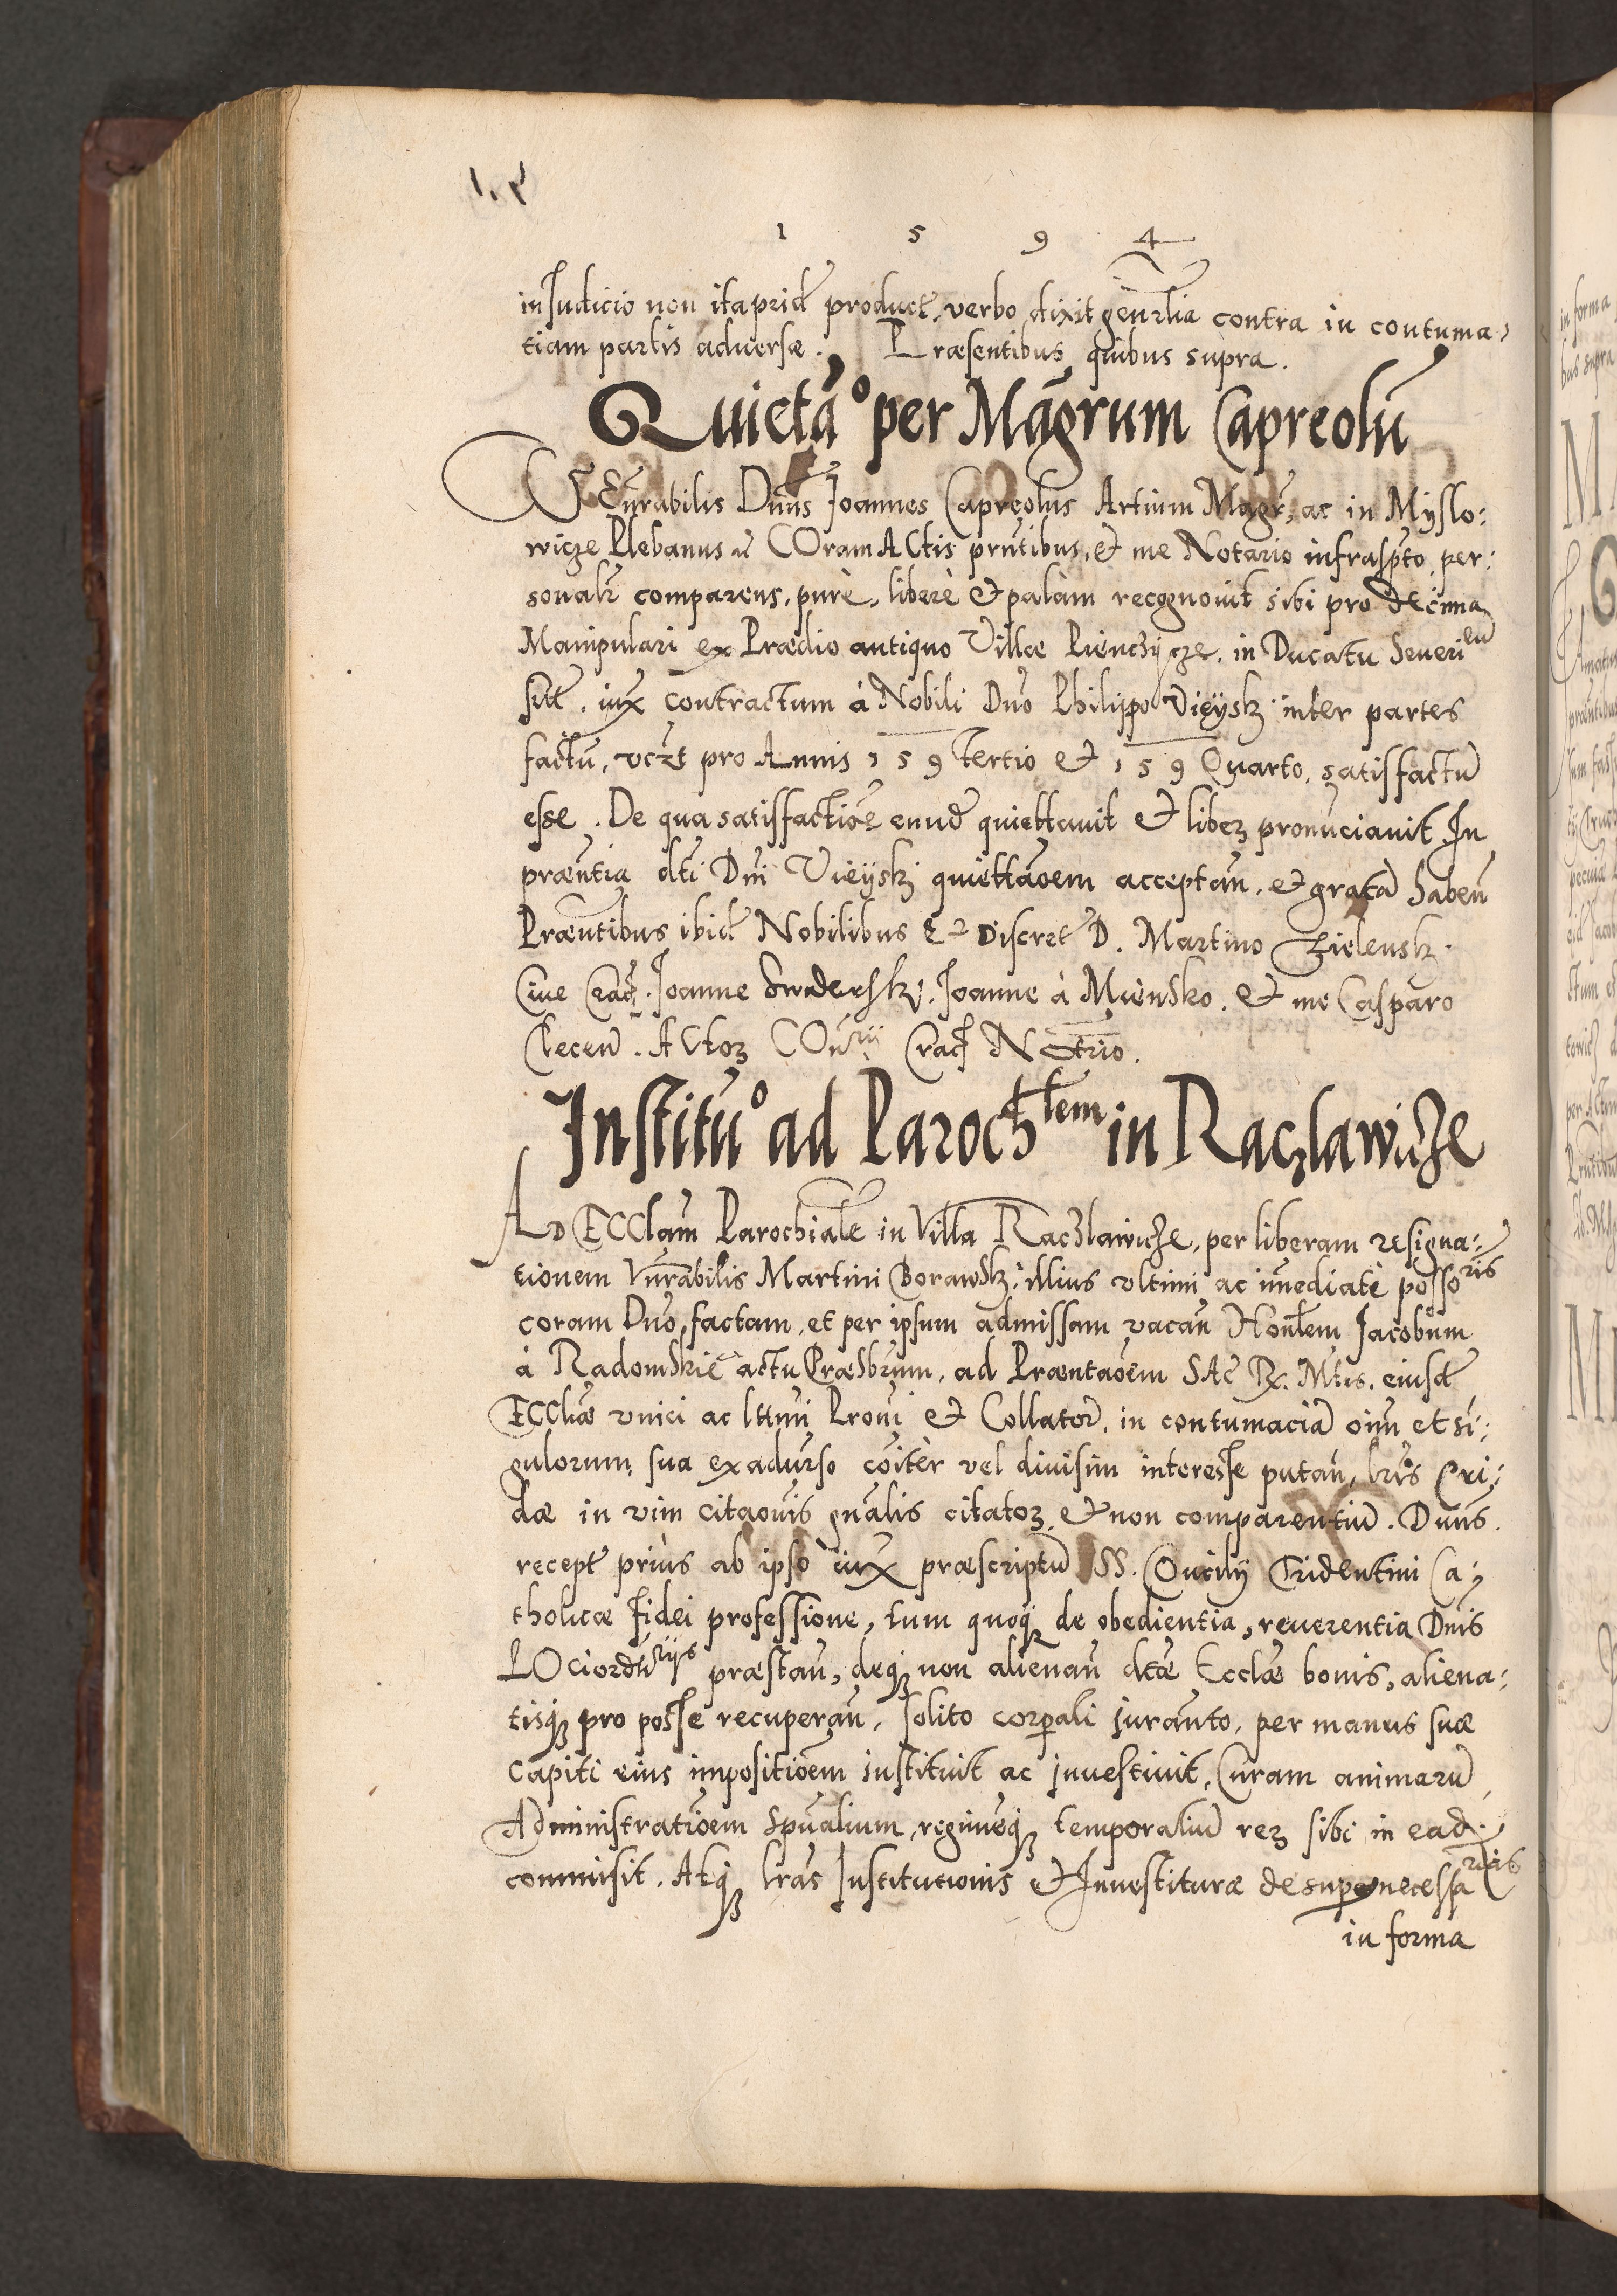 1 5 9 4
in Judicio non ita prid̃ product̃, verbo dixit gen̄rlia contra in contuma-
tiam partis aduersæ. Præsentibus quibus supra.
Quietaõ per Mãgrum Capreolũ
VEn̄rabilis Dnũs Joannes Capreolus Artium Magr̃, ac in Myslo:
wicze Plebanus COram ACtis prñtibus, et me Notario infrasp̃to, per:
sonalr̃ comparens, purè, libere et palàm recognouit sibi pro decima
Manipulari ex Prædio antiquo Villæ Pienczycze, in Ducatu Seuerien̄
sit̃. iux̃ contractum à Nobili Dño Philippo Vieysk: inter partes
factũ, vcz̃t pro Annis 159 Tertio et 159 Quarto, satisfactũ
esse. De qua satisfactiõe eund̃ quiettauit et liber̃ pronũciauit. In
præñtia dt̃i Dñi Vieyski quiettaõem acceptañ, et gratã habeñ
Præñtibus ibid̃ Nobilibus et Discret̃ D. Martino Zielensk:
Ciue Crac̃. Joanne Swadersk: Joanne à Miensko, et me Casparo
Clecen̄. ACtoꝝ COn̄rij Crac̃ Notrĩo.
Institũo ad Paroch̃lem in Raczlawicze
AD ECCl̃am Parochialẽ in Villa Raczlawicze, per liberam resigna:
tionem Vn̄rabilis Martini Borawsk: illius vltimi ac im̃ediatè posso͏ris
coram Dño factam, et per ipsum admissam vacañ Hon̄lem Jacobum
à Radomskie actu Præsb̃rum, ad Præntaõem SAC̃ R. Mt̃is. eiusd̃
ECCl̃iæ vnici ac lt̃t̃imi Pron̄i et Collator̃, in contumaciã oĩm et sĩ:
gulorum, sua ex adũrso cõiter vel diuisim interesse putañ, lr̃is Cri:
dæ in vim citaõnis gñalis citatoꝝ, et non comparentiũ. Dnũs
recept̃ priùs ab ipso iux̃ præscriptũ SS. Concilij Tridentini Ca:
tholicæ fidei professione, tum quoqꝫ de obedientia, reuerentia Dñis
LOciordr̃ijs præstañ, deqꝫ non alienañ dt̃æ Eccl̃æ bonis, aliena:
tisqꝫ pro posse recuperañ, solito corp̃ali jurañto, per manus suæ
capiti eius impositiõem instituit ac jnuestiuit, Curam animarũ
Administratiõem Spũalium, regimẽqꝫ temporaliũ reꝝ sibi in ead̃.
commisit. Atqꝫ lr̃as Institutionis et Inuestituræ desuper necessarias
in forma